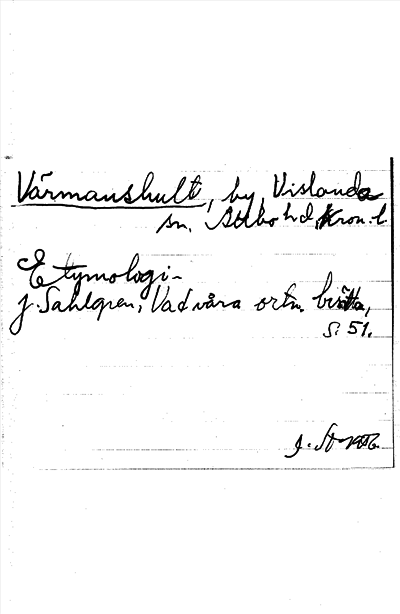 Värmanshult, by, Vislanda
sn, Allbo hd, Kron. l.
Etymologi-
J. Sahlgren, Vad våra ortn. berätta,
S. 51.
J.